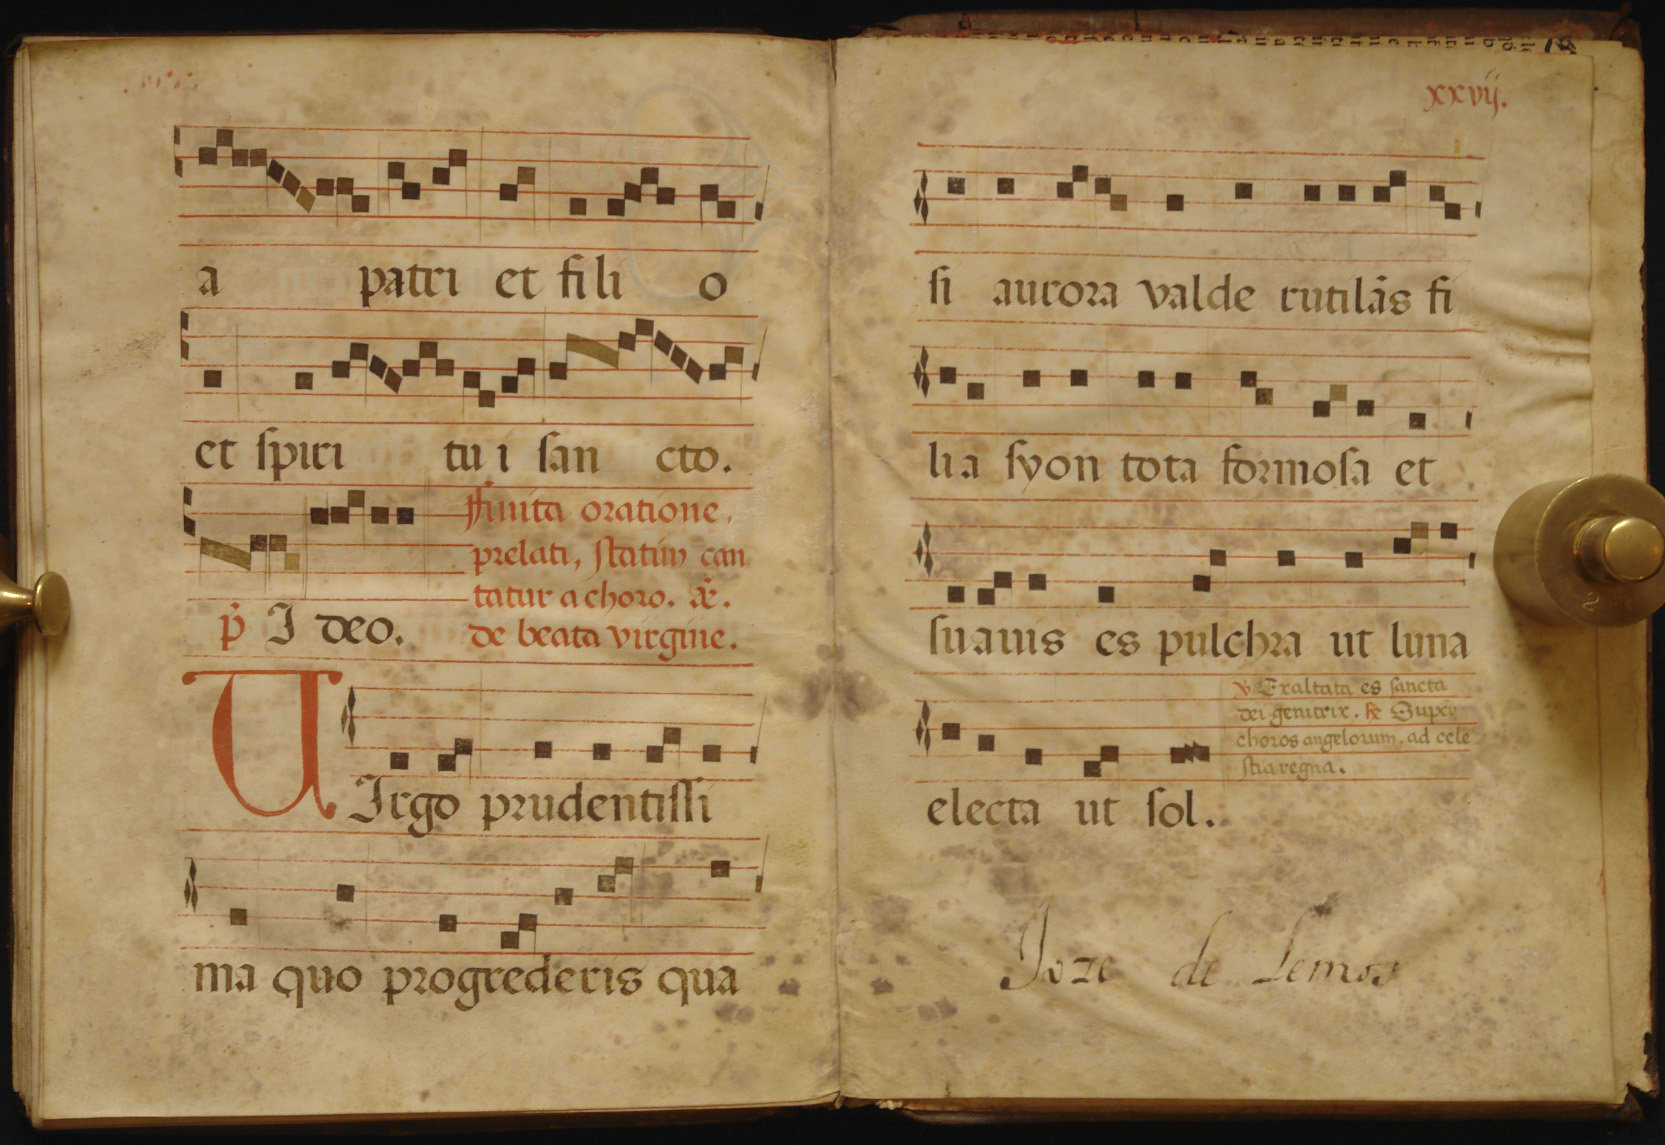 a patri et fili o
et ſpiri tu i ſan cto.
Finita oratione,
prelati, ſtatim can
tatur a choro. añ.
p̄ I deo. de beata virgine.
VIrgo prudentiſſi
ma quo progrederis qua
xxvij.
ſi aurora valde rutilās fi
lia ſyon tota formoſa et
ſuauis es pulchra ut luna
℣ Exaltata es ſancta
dei genitrix. ℟ Super
choros angelorum, ad cele
ſtia regna.
electa ut ſol.
Joze de Lemos